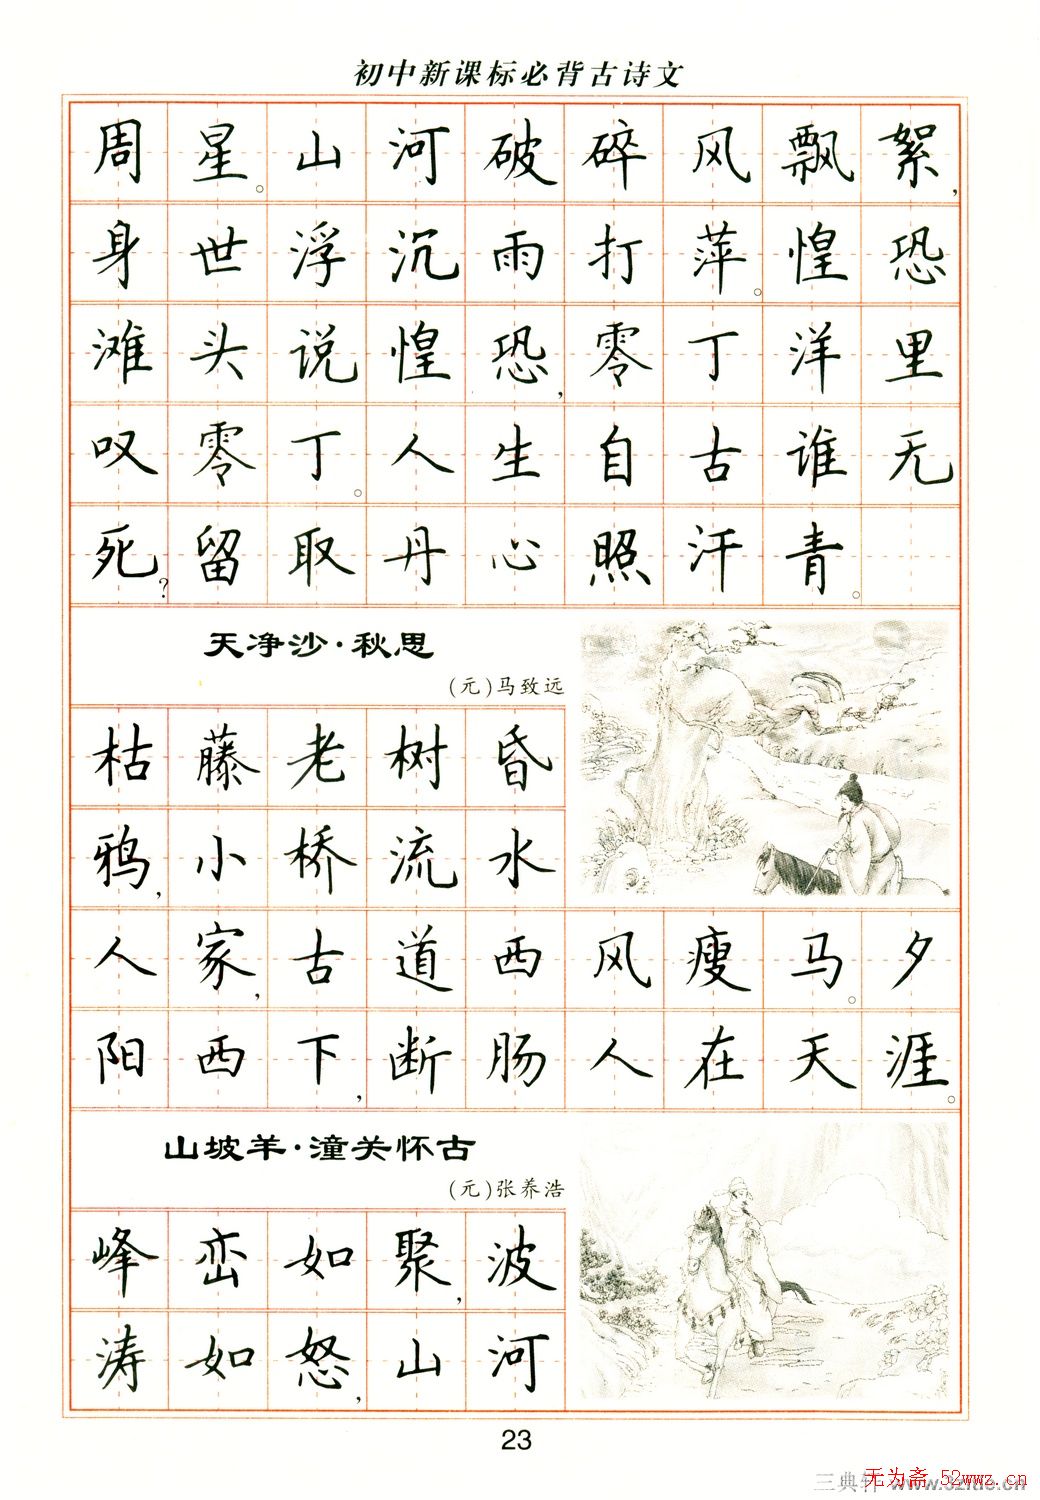 初中新课标必背古诗文
周星。山河破碎风飘絮，
身世浮沉雨打萍。惶恐
滩头说惶恐，零丁洋里
叹零丁。人生自古谁无
死？留取丹心照汗青。
天净沙·秋思
(元)马致远
枯藤老树昏
鸦，小桥流水
人家，古道西风瘦马。夕
阳西下，断肠人在天涯。
山坡羊·潼关怀古
(元)张养浩
峰峦如聚，波
涛如怒，山河
23
无为斋.52wwz.cn